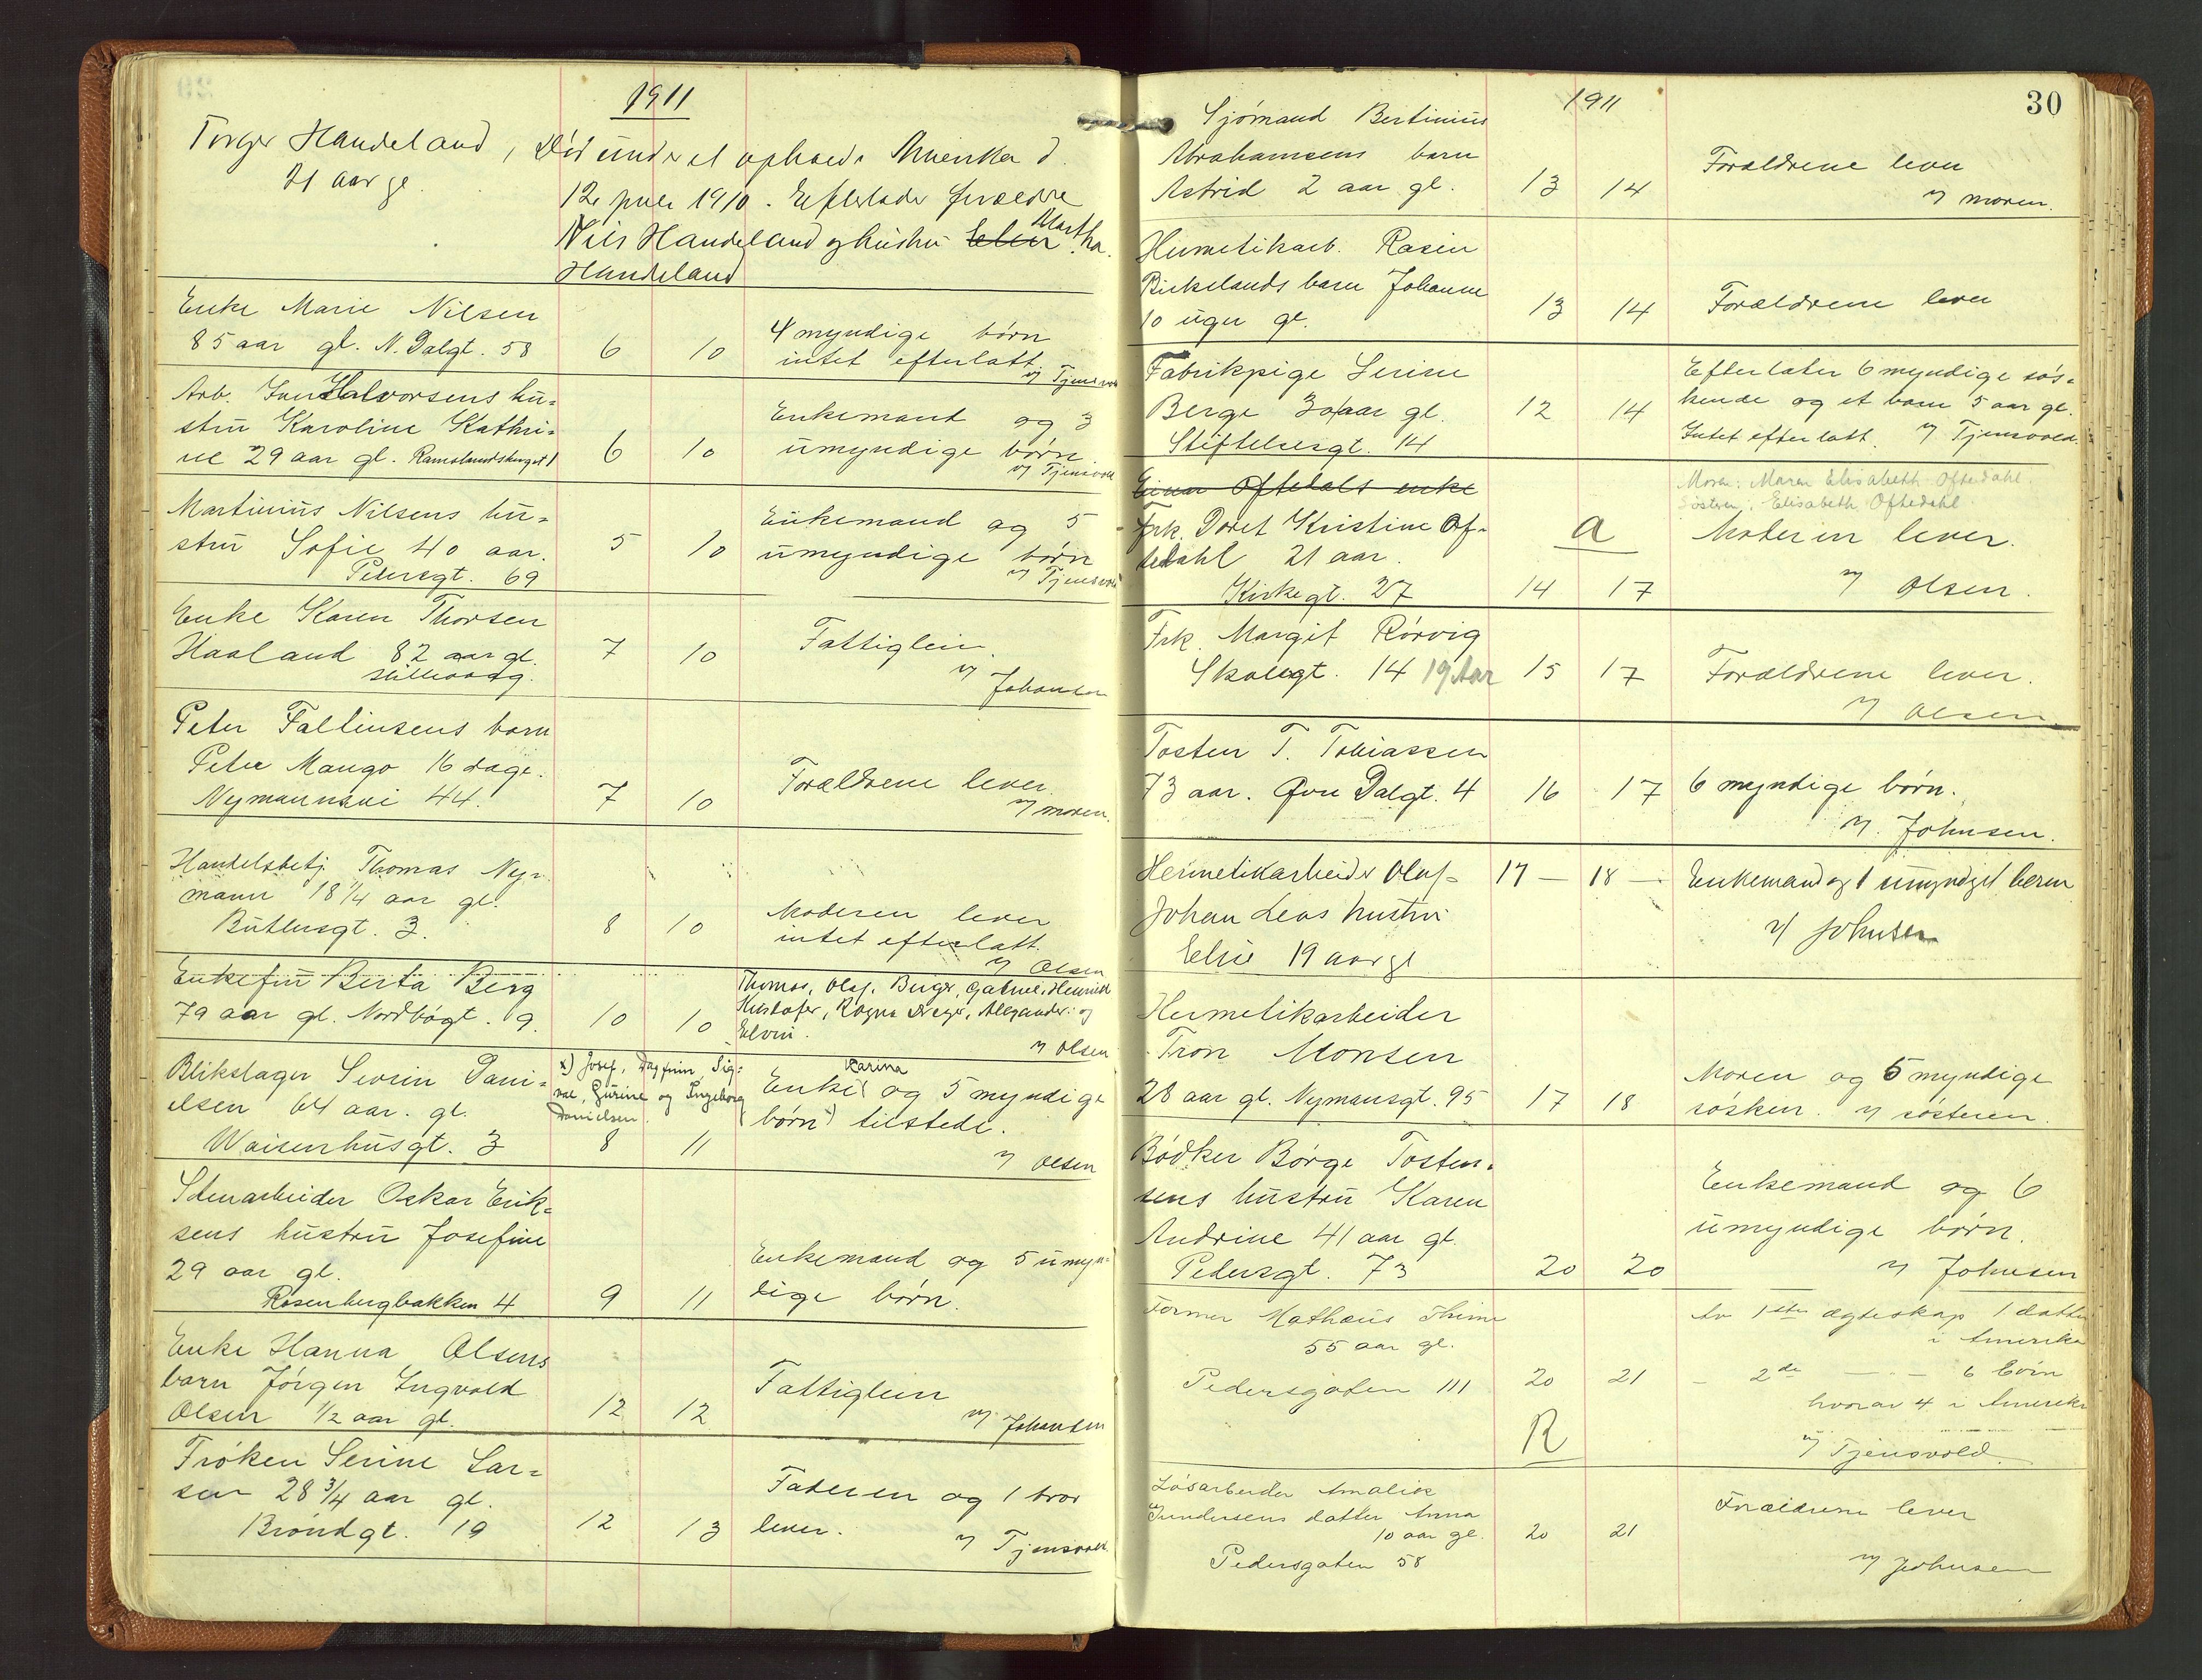 1911
Torger Handeland, Död under et ophold i Amerika d.
21 aar gl.
12 juli 1910. Efterlader forældre
Martha
Nils Handeland og hustru Elen
Handeland
Enke Marie Nilsen
85 aar gl. N. Dalgt. 58 6 10 4 myndige börn
intet efterlatt
v/ Tjensvold
Arb. Halvorsens hu=
stru Karoline Kathri=
ne 29 aar gl. Ramslandsberget 1 6 10 Enkemand og 3
umyndige börn
v/ Tjensvold
Martinius Nilsens hu=
stru Sofie 40 aar.
Pedersgt. 69 5 10 Enkemand og 5
umyndige börn
v/ Tjensvold
Enke Karen Thorsen
Haaland 82 aar gl. 7 10 Fattiglem.
v/ Johansen
Peter Fallinsens barn
Peter Mango 16 dage.
Nymannsvei 44. 7 10 Forældrene lever.
v/ moren.
Handelsbetj. Thomas Ny=
mann 18 1/4 aar gl.
Butlersgt. 3. 8 10 Moderen lever
intet efterlatt.
v/ Olsen
Enkefru Berta Berg
79 aar gl. Nordbögt. 9. 10 10 Thomas, Olaf, Birger, Gabriel, Henrich
Kristofer, Ragna Dreyer, Alexander og
Elvin.
v/ Olsen
Blikslager Sevrin Dani=
elsen 64 aar. gl.
Waisenhusgt. 3 8 11
x) Josef, Dagfinn, Sig=
val, Gurine og Ingeborg
Danielsen
Karina
Enke og 5 myndige
börn x) tilstede.
v/ Olsen
Stenarbeider Oskar Erik=
sens hustru Josefine
29 aar gl.
Rosenbergbakken 4 9 11 Enkemand og 5 umyn=
dige börn.
Enke Hanna Olsens
barn Jörgen Ingvald
Olsen 1/2 aar gl. 12 12 Fattiglem
v/ Johansen
Fröken Serine Lar=
sen 28 3/4 aar gl.
Bröndgt. 19 12 13 Faderen og 1 bror
lever.
v/ Tjensvold
30
1911
Sjömand Bertinius
Abrahamsens barn
Astrid 2 aar gl. 13 14 Forældrene lever
v/ moren.
Hermetikarb. Rasin
Birkelands barn Johanne
10 uger gl. 13 14 Forældrene lever
Fabrikpige Serine
Berge 30 aar gl.
Stiftelsesgt. 14 12 14 Efterlater 6 myndige sös=
kende og et barn 5 aar gl.
Intet efterlatt. v/ Tjensvold.
Einar Oftedals enke
Frk. Doret Kristine Of=
tedahl 21 aar.
Kirkegt. 27 14 17
a
Moren: Maren Elisabeth Oftedahl.
Söster: Elisabeth Oftedahl
Moderen lever.
v/ Olsen.
Frk. Margit Rörvig
Skolegt. 14 19 Aar 15 17 Forældrene lever.
v/ Olsen
Tosten T. Tobiassen
73 aar. Övre Dalgt. 4 16 17 6 myndige börn.
v/ Johnsen.
Hermetikarbeider Oluf
Johan Leas hustru
Elsie 19 aar gl 17 — 18 — Enkemand og 1 umyndigt barn
v/ Johnsen
Hermetikarbeider
Tron Monsen
28 aar gl. Nymansgt. 95 17 18 Moren og 5 myndige
sösken. v/ sösteren.
Bödker Börge Tosten=
sens hustru Karen
Andrine 41 aar gl.
Pedersgt. 73 20 20 Enkemand og 6
umyndige börn.
v/ Johnsen
Former Mathæus Thime
55 aar gl.
Pedersgaten 111 20 21
R
Av 1ste ægteskap 1 datter
i Amerika
— 2de — — 6 börn
hvorav 4 i Amerika
v/ Tjensvold.
Lösarbeider Amalie
Gundersens datter Anna
10 aar gl.
Pedersgaten 58 20 21 Forældrene lever
v/ Johnsen